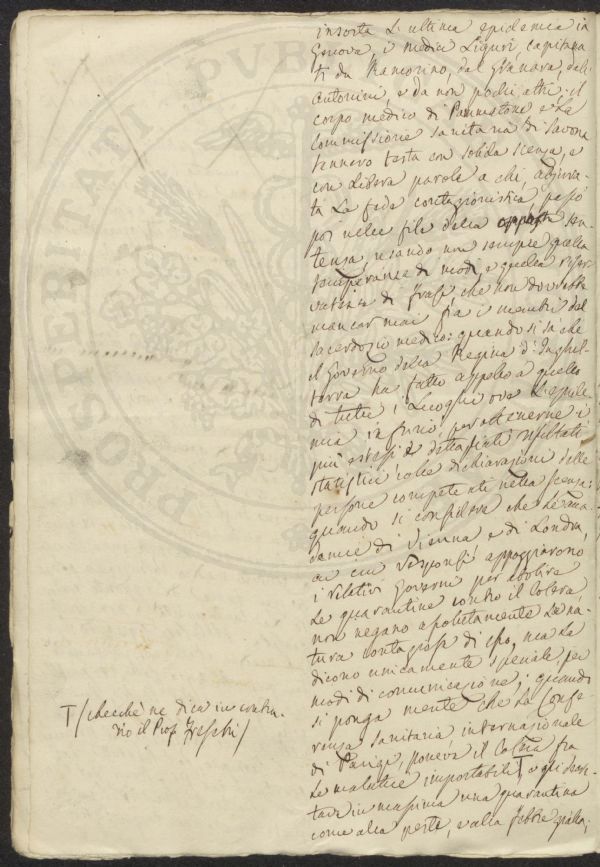 insorta l'ultima epidemia in
Genova, i medici Liguri capitana-
ti da Ramorino, dal Granara, dall'
Antonini, e da non pochi altri; il
corpo medico di Pammatone e la
Commissione sanitaria di Savona
tennero testa con solida scienza, e
con libera parola a chi,
ta la fede contagionistica, passò
poi nelle file della opposta sen-
tenza, usando non sempre quella
temperanza di modi, e quella riser-
vatezza di frasi, che non dovrebbe
mancar mai frà i membri del
sacerdozio medico: quando si sa che
il Governo della Regina d'Inghil-
terra ha fatto appello a quello
di tutti i Luoghi ove l'epide-
mia infuriò, per ottenerne i
più estesi e dettagliati risultati
statistici colle dichiarazioni delle
persone competenti nella scienza;
quando si considera che le Acca-
demie di Vienna e di Londra,
ai cui responsi appoggiarono
i relativi Governi per abolire
le quarantine contro il Colera,
non negano assolutamente la na-
tura contagiosa di esso, ma la
dicono unicamente speciale, per
modi di comunicazione; quando
si ponga mente che la Confe-
renza sanitaria internazionale
di Parigi, poneva il Colera fra
le malattie importabili T, e gli
tava in massima una quarantina
come alla peste, e alla febbre gialla;
T/ checchè ne dica in contra-
rio il Prof. Freschi/
PROSPERITATI PUBL